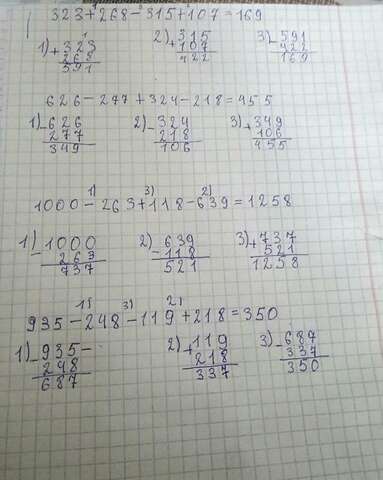 323+268-315+107=169
1) +323 2) +315 3) -591
268 107 422
591 422 169
626-277+324-218=455
1) -626 2) -324 3) +349
277 218 106
349 106 455
1) 3) 2)
1000-263+118-639=1258
1) -1000 2) -639 3) +737
263 118 521
737 521 1258
1) 3) 2)
935-248-119+218=350
1) -935- 2) +119 3) -687
248 218 337
687 337 350